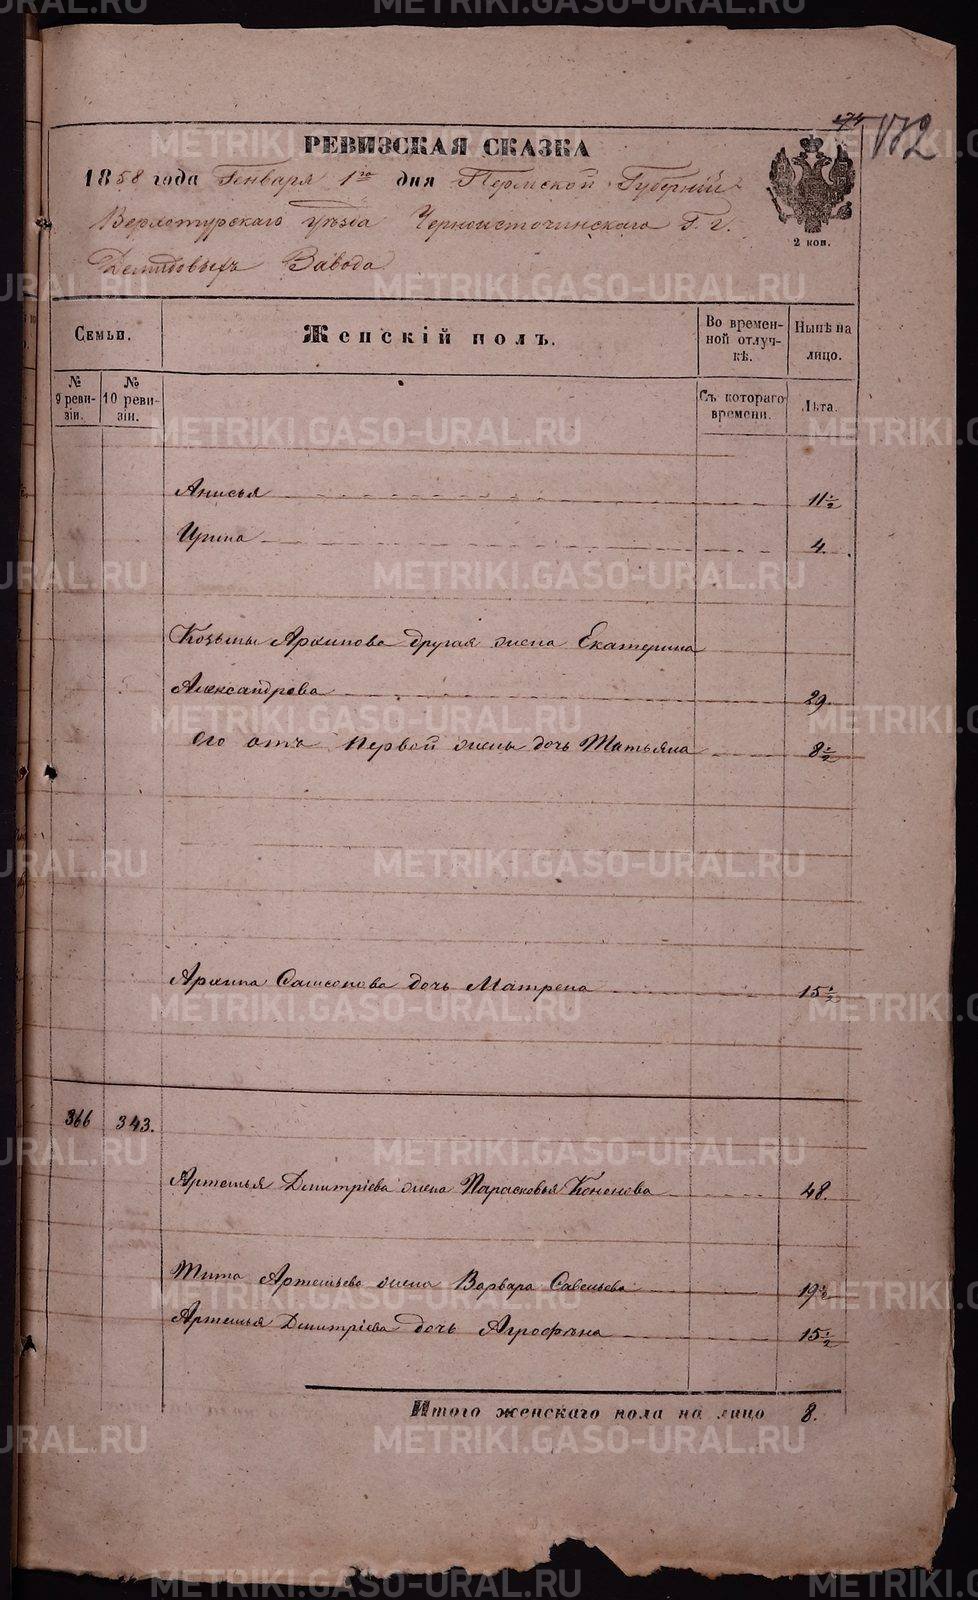 174 132
РЕВИЗСКАЯ СКАЗКА
1858 года Генваря 1го дня Пермской Губерніи
Верхотурскаго Уѣзда Черноисточинскаго Г. г.
Демидовыхъ Завода
2 коп.
Семьи.
Женскій полъ.
Во временной отлучкѣ.
Нынѣ на лицо.
№ 9 ревизіи.
№ 10 ревизіи.
Съ котораго времени.
Лѣта.
Анисья 11 1/2
Ирина 4.
Козьмы Архипова другая жена Екатерина
Александрова 29.
его отъ первой жены дочь Татьяна 8 1/2
Архипа Самсонова дочь Матрена 15 1/2
366 343.
Артемья Дмитріева жена Парасковья Кононова 48.
Тита Артемьева жена Варвара Савельева 19 1/2
Артемья Дмитріева дочь Агрофѣна 15 1/2
Итого женскаго пола на лицо 8.
METRIKI.GASO-URAL.RU